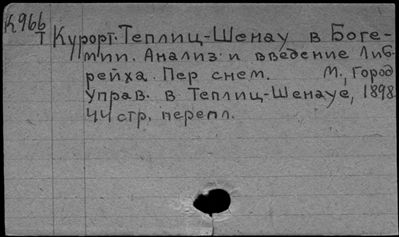 К966
Т Курорт Теплиц-Шенау в Боге-
мии. Анализ и введение Либ-
рейха. Пер с нем. М., Город
управ. в Теплиц-Шенауе, 1898.
44 стр, перепл.